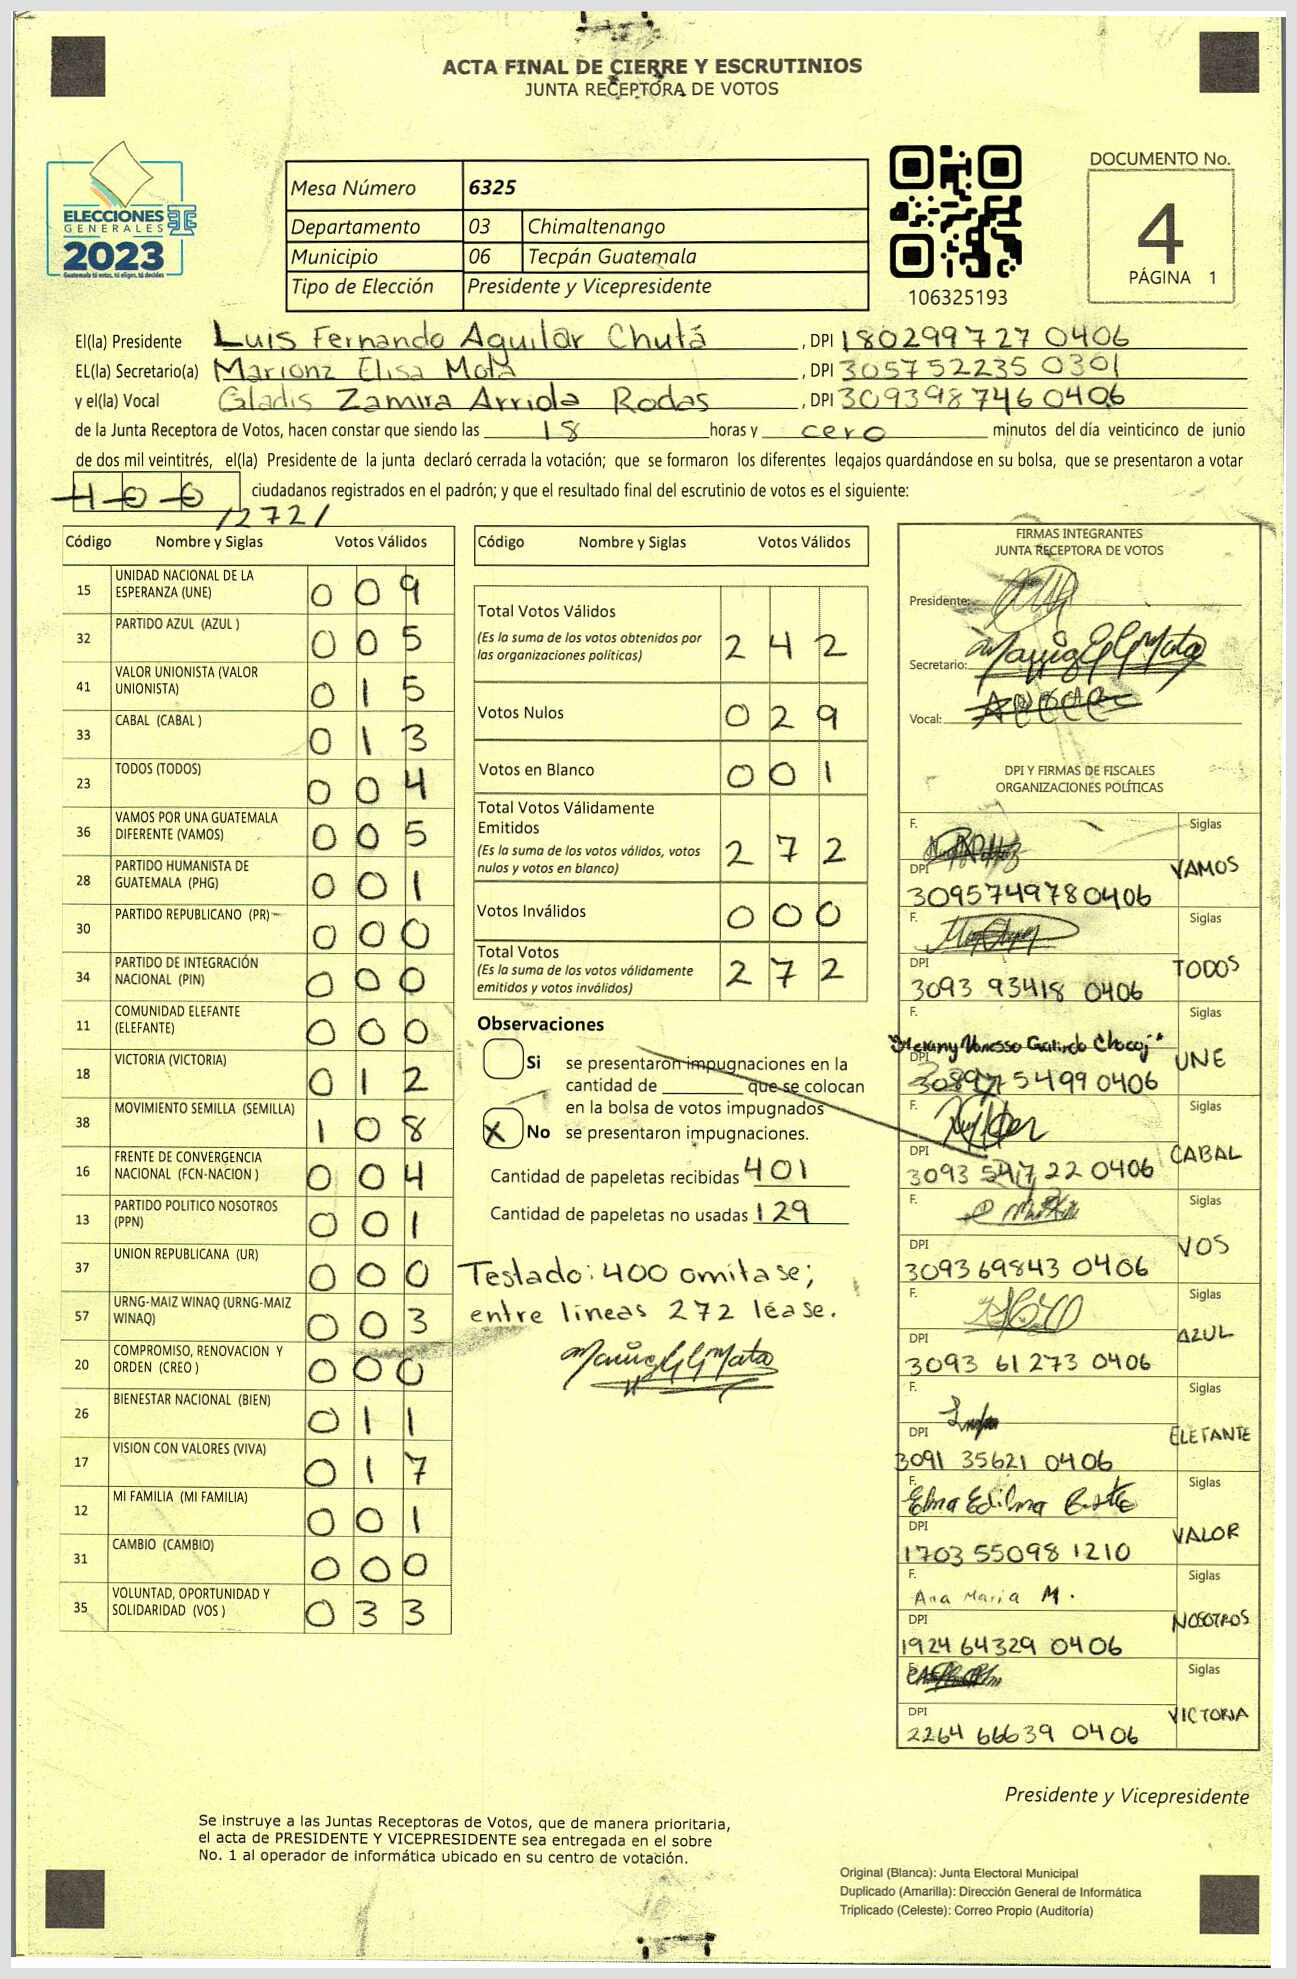 ACTA FINAL DE CIERRE Y ESCRUTINIOS
JUNTA RECEPTORA DE VOTOS
ELECCIONES
GENERALES
2023
Guatemala tú votas, tú eliges, tú decides
Mesa Número 6325
Departamento 03 Chimaltenango
Municipio 06 Tecpán Guatemala
Tipo de Elección Presidente y Vicepresidente
106325193
DOCUMENTO No.
4
PÁGINA 1
El(la) Presidente Luis Fernando Aguilar Chutá, DPI 180299727 0406
EL(la) Secretario(a) Marionz Elisa Mota, DPI 305752235 0301
y el(la) Vocal Gladis Zamira Arriola Rodas, DPI 309398746 0406
de la Junta Receptora de Votos, hacen constar que siendo las 18 horas y cero minutos del día veinticinco de junio
de dos mil veintitrés, el(la) Presidente de la junta declaró cerrada la votación; que se formaron los diferentes legajos guardándose en su bolsa, que se presentaron a votar
400 ciudadanos registrados en el padrón; y que el resultado final del escrutinio de votos es el siguiente:
/272/
Código Nombre y Siglas Votos Válidos
15 UNIDAD NACIONAL DE LA ESPERANZA (UNE) 009
32 PARTIDO AZUL (AZUL ) 005
41 VALOR UNIONISTA (VALOR UNIONISTA) 015
33 CABAL (CABAL ) 013
23 TODOS (TODOS) 004
36 VAMOS POR UNA GUATEMALA DIFERENTE (VAMOS) 005
28 PARTIDO HUMANISTA DE GUATEMALA (PHG) 001
30 PARTIDO REPUBLICANO (PR) 000
34 PARTIDO DE INTEGRACIÓN NACIONAL (PIN) 000
11 COMUNIDAD ELEFANTE (ELEFANTE) 000
18 VICTORIA (VICTORIA) 012
38 MOVIMIENTO SEMILLA (SEMILLA) 108
16 FRENTE DE CONVERGENCIA NACIONAL (FCN-NACION ) 004
13 PARTIDO POLITICO NOSOTROS (PPN) 001
37 UNION REPUBLICANA (UR) 000
57 URNG-MAIZ WINAQ (URNG-MAIZ WINAQ) 003
20 COMPROMISO, RENOVACION Y ORDEN (CREO ) 000
26 BIENESTAR NACIONAL (BIEN) 011
17 VISION CON VALORES (VIVA) 017
12 MI FAMILIA (MI FAMILIA) 001
31 CAMBIO (CAMBIO) 000
35 VOLUNTAD, OPORTUNIDAD Y SOLIDARIDAD (VOS ) 033
Código Nombre y Siglas Votos Válidos
Total Votos Válidos 242
(Es la suma de los votos obtenidos por
las organizaciones políticas)
Votos Nulos 029
Votos en Blanco 001
Total Votos Válidamente
Emitidos 272
(Es la suma de los votos válidos, votos
nulos y votos en blanco)
Votos Inválidos 000
Total Votos 272
(Es la suma de los votos válidamente
emitidos y votos inválidos)
Observaciones
Si se presentaron impugnaciones en la
cantidad de ________ que se colocan
en la bolsa de votos impugnados
X No se presentaron impugnaciones.
Cantidad de papeletas recibidas 401
Cantidad de papeletas no usadas 129
Testado: 400 omitase;
entre líneas 272 léase.
FIRMAS INTEGRANTES
JUNTA RECEPTORA DE VOTOS
Presidente:
Secretario:
Vocal:
DPI Y FIRMAS DE FISCALES
ORGANIZACIONES POLÍTICAS
F. Siglas
DPI VAMOS
309574978 0406
F. Siglas
DPI TODOS
3093 93418 0406
F. Siglas
Vanessa Galindo Chocoj
DPI UNE
5499 0406
F. Siglas
DPI CABAL
3093 22 0406
F. Siglas
DPI VOS
3093 69843 0406
F. Siglas
DPI AZUL
3093 61 273 0406
F. Siglas
DPI ELEFANTE
3091 35621 0406
F. Siglas
Elma Edilma
DPI VALOR
1703 55098 1210
F. Siglas
Ana Maria M.
DPI NOSOTROS
1924 64329 0406
F. Siglas
DPI VICTORIA
2264 66639 0406
Presidente y Vicepresidente
Se instruye a las Juntas Receptoras de Votos, que de manera prioritaria,
el acta de PRESIDENTE Y VICEPRESIDENTE sea entregada en el sobre
No. 1 al operador de informática ubicado en su centro de votación.
Original (Blanca): Junta Electoral Municipal
Duplicado (Amarilla): Dirección General de Informática
Triplicado (Celeste): Correo Propio (Auditoría)